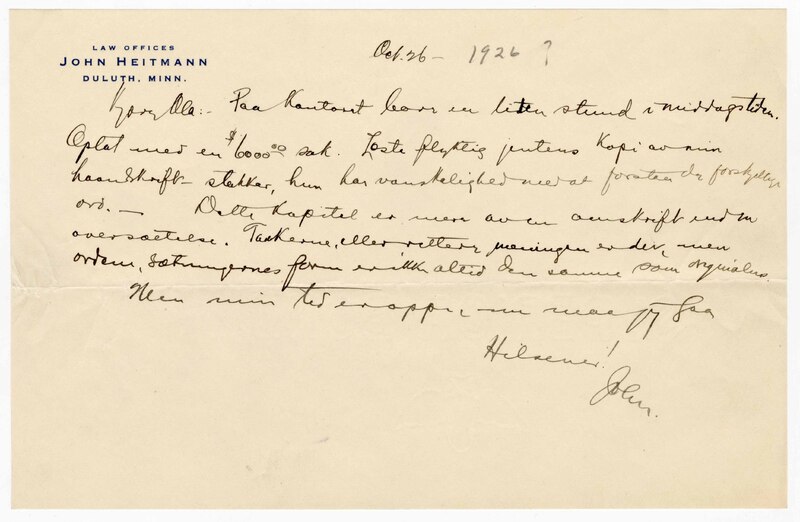 LAW OFFICES
JOHN HEITMANN
DULUTH, MINN.
Oct. 26 – 1926 ?
Kjære Ola:- Paa kontoret bare en liten stund i middagstiden.
Optat med en $6000.00 sak. Læste flygtig jentens Kopi av min
haandskrift – stakker, hun har vanskelighed med at forstaa de forskjellige
ord. — Dette Kapitel er mere av en omskrift end en
oversættelse. Tankerne, eller rettere meningen er der, men
ordene, sætningernes form er ikke altid den samme som orginalens.
Men min tid er oppe, – nu maa jeg gaa
Hilsener!
John.